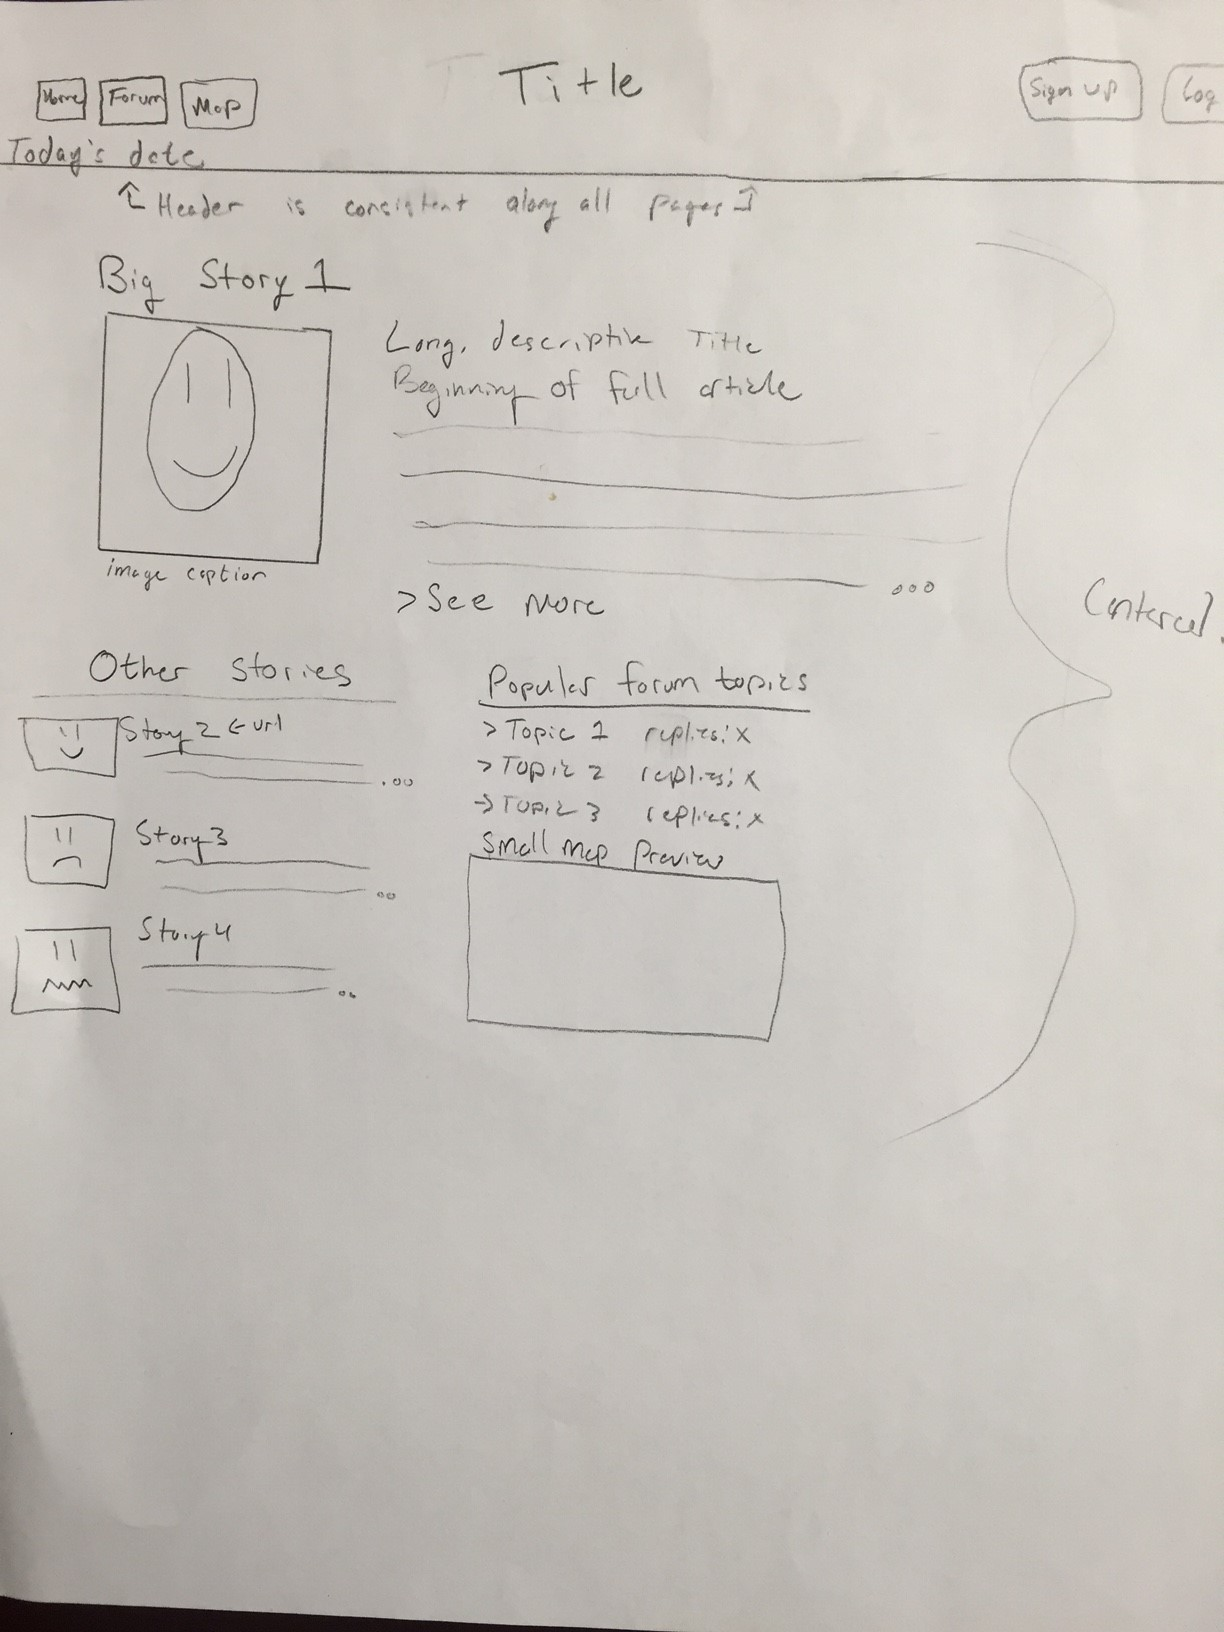 Home Forum Map Title Sign up Log
Today's date
Header is consistent along all pages
Big Story 1
Long, descriptive Title
Beginning of full article
image caption
> See More
Centered.
Other stories
Story 2 ← url
Story 3
Story 4
Popular forum topics
> Topic 1 replies: x
> Topic 2 replies: x
> Topic 3 replies: x
Small Map Preview